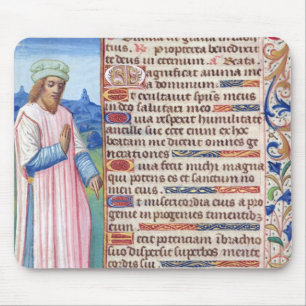 Divina in gratia in labijs
tuis. R propterea benedixit
te deus in eternum A Beata.
Magnificat anima mea
dominum.
Et exultauit spūs meus
in deo salutari meo
Quia respexit humilitatē
ancille sue ecce enim ex hoc
beatam me dicent omnes ge
nerationes
Quia fecit michi magna
qui potens es et sanctum no
men eius
Et misericordia eius a pro
genie in progenies timentib
eum
Fecit potenciam ībrachio
suo dispersit superbos mente
cordis sui